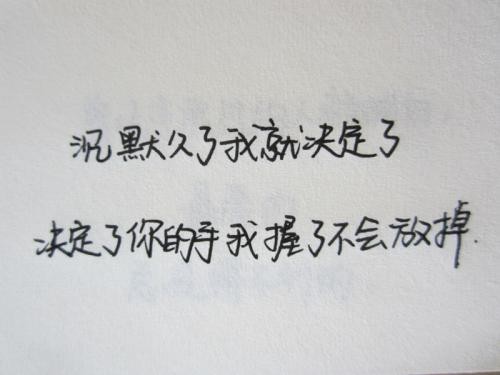 沉默久了我就决定了
决定了你的手我握了不会放掉.